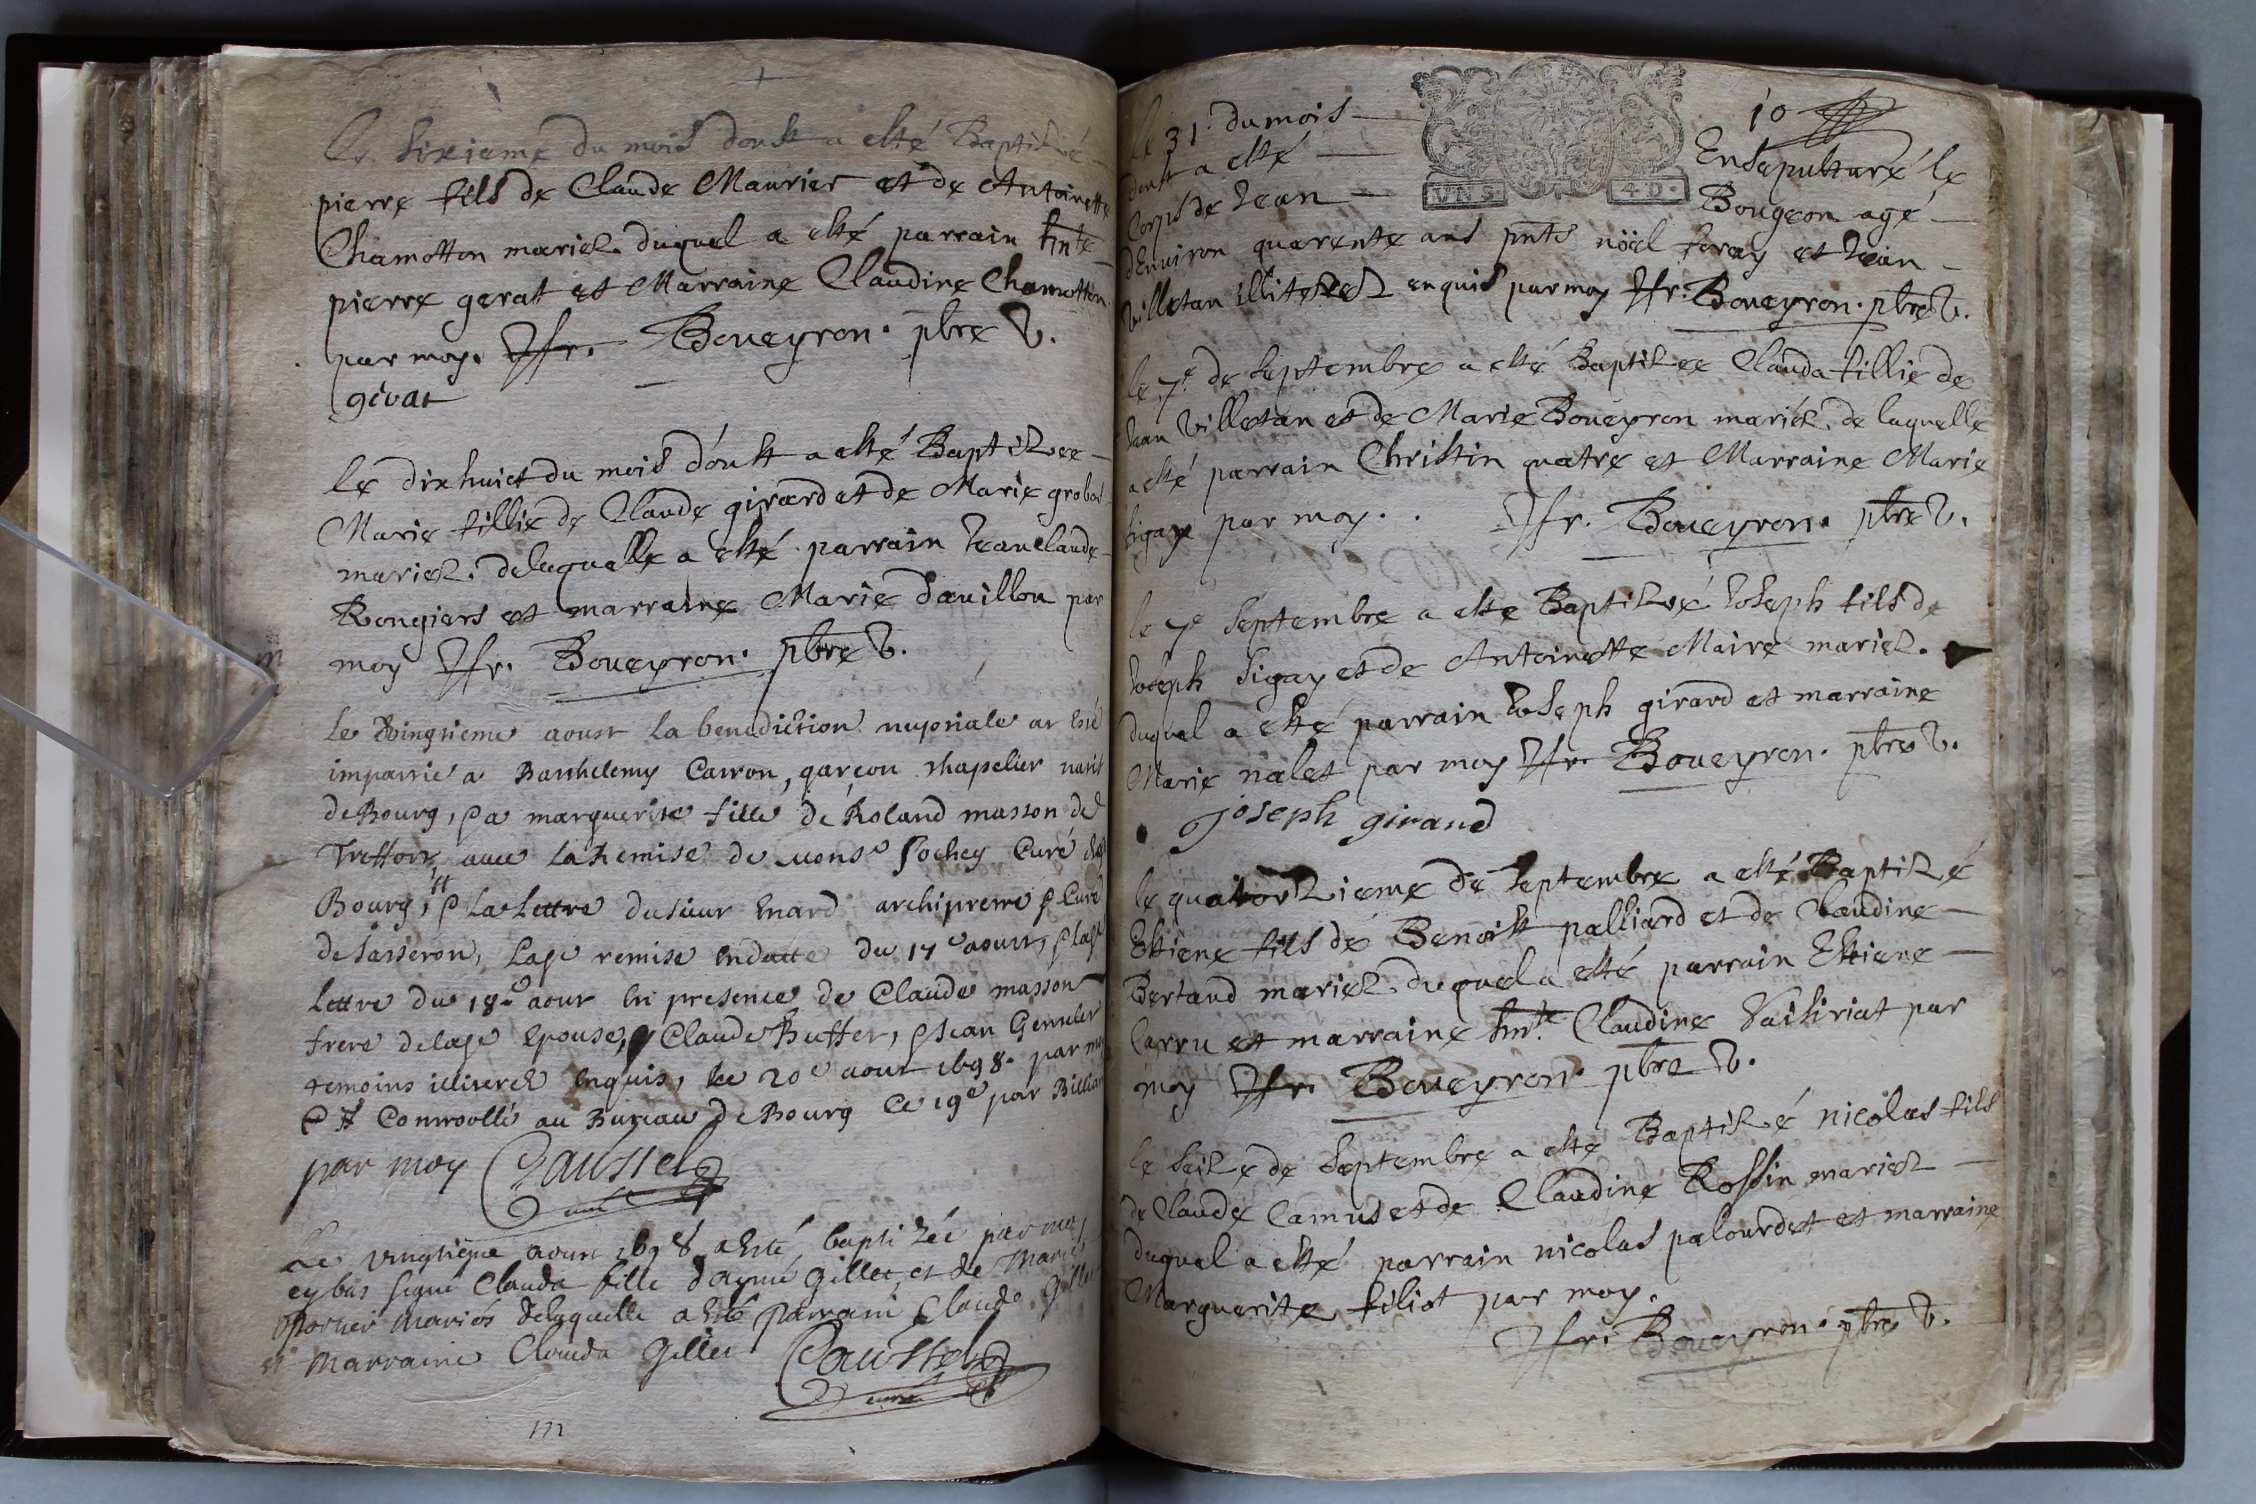 Le sixieme du mois d'oust a esté Baptisé
pierre fils de Claude Maurier et de Antoinette
Chamotton mariez. duquel a esté parrain hnte
pierre gerat et Marraine Claudine Chamotton
par moy. Boueyron. pbre V.
givat
le dixhuict du mois d'oust a esté Baptizee
Marie fillie de Claude girard et de Marie grobas
mariez. de laquelle a esté parrain Jean claude
Rougiers et marraine Marie dauillon par
moy Boueyron. pbre V.
Le Vingtieme aoust la benediction nuptiale at Esté
impartie a Barthelemy Carron, garcon chapelier natif
de Bourg, & a marguerite fille de Roland masson de
Treffort, auec la remise de mons.r Curé de
Bourg, & La Lettre du sieur Enard archipretre & Curé
de Jasseron, remise En datte du 17e aoust,
Lettre du 18e aout En presence de Claude masson
frere de Epouse, Claude Buffet, & Jean
temoins illiterez Enquis, ce 20e aout 1698. par
Controollé au Bureau de Bourg Ce 19e par
par moy Caussel
Le vingtieme aout 1698 a Esté baptizée par moy
cy bas signé Clauda fille d'aymé Gillet, et de Marie
mariés de laquelle a Esté Parrain Claude
et Marraine Clauda Gillet Caussel
m
10
le 31. du mois
doust a esté Ensepulturé le
Corps de Jean Bougeon agé
VN S 4 D.
d'Enuiron quarente ans pnts nöel feray et Jean
Villetan illiterez enquis par moy Boueyron. pbre V.
le 7e de septembre a esté Baptizee Clauda fillie de
Jean Villetan et de Marie Boueyron mariéz. de laquelle
a esté parrain Christin quatre et Marraine Marie
sigay par moy. Boueyron. pbre V.
le 7e septembre a este Baptizé Joseph fils de
Joseph sigay et de Antoinette Maire mariez.
duquel a esté parrain Joseph girard et marraine
Marie nalet par moy Boueyron. pbre V.
Joseph giraud
le quatorzieme de septembre a esté Baptizé
Estiene fils de Benoist palliard et de Claudine
Bertaud mariez. duquel a esté parrain Estiene
Carru et marraine hnte Claudine par
moy Boueyron. pbre V.
le seize de septembre a esté Baptizé nicolas fils
de Claude Camus et de Claudine Rossin mariez
duquel a esté parrain nicolas palourdet et marraine
Marguerite filiot par moy.
Boueyron. pbre V.